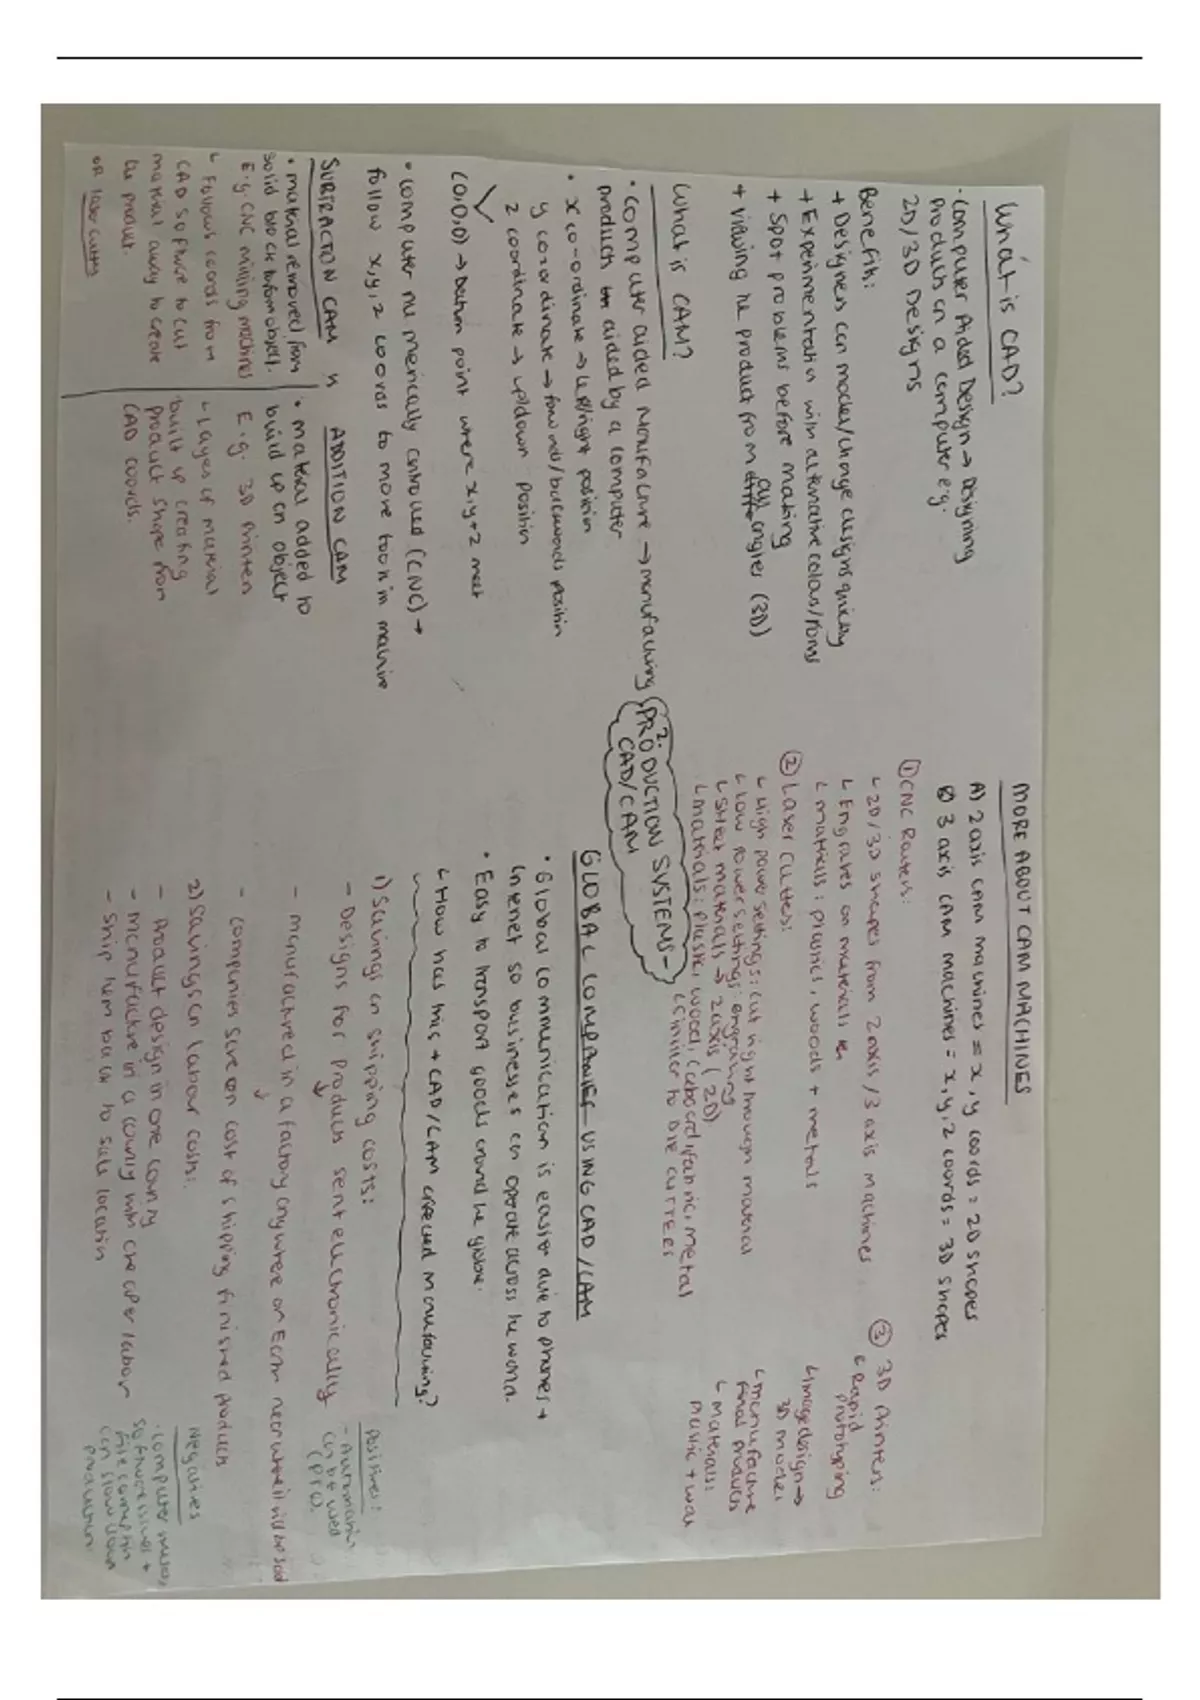 What is CAD?
· Computer Aided Design → Designing
products on a computer e.g.
2D/3D Designs
Benefits:
+ Designers can model/change designs quickly
+ Experimentation with alternative colours/forms
+ Spot problems before making
+ Viewing the product from all angles (3D)
What is CAM?
· Computer aided manufacture → manufacturing
product aided by a computer
· x co-ordinate → left/right position
y coordinate → forwards/backwards position
z coordinate → up/down position
(0,0,0) → Datum point where x,y+z meet
· Computer numerically controlled (CNC) →
follow x,y,z coords to move tools in machine
SUBTRACTION CAM
· material removed from
solid block to form object.
E.g. CNC milling machines
↳ Follows coords from
CAD software to cut
material away to create
the product.
OR laser cutters
ADDITION CAM
· material added to
build up an object
E.g. 3D printers
↳ Layers of material
built up creating
product shape from
CAD coords.
2. PRODUCTION SYSTEMS-
CAD/CAM
MORE ABOUT CAM MACHINES
A) 2 axis CAM machines = x,y coords = 2D shapes
B) 3 axis CAM machines = x,y,z coords = 3D shapes
① CNC Routers:
↳ 2D/3D shapes from 2 axis/3 axis machines
↳ Engraves on materials
↳ materials: plastics, woods + metals
② Laser cutters:
↳ High power settings: cut right through material
↳ Low power settings: engraving
↳ Sheet materials → 2 axis (2D)
↳ materials: plastic, wood, cardboard, fabric, metal
↳ Similar to DIE CUTTERS
③ 3D printers:
↳ Rapid
prototyping
↳ Image design →
3D model
↳ manufacture
final products
↳ Materials:
plastic + wax
GLOBAL COMPANIES USING CAD/CAM
· Global communication is easier due to phones +
internet so businesses can operate across the world.
· Easy to transport goods around the globe.
↳ How has this + CAD/CAM affected manufacturing?
1) Savings in shipping costs:
- Designs for products sent electronically
- manufactured in a factory anywhere on Earth near where it will be sold
- companies save on cost of shipping finished products
2) Savings on labour costs:
- Product design in one country
- manufacture in a country with cheaper labour
- ship them back to sale location
Positives:
- Automation
can be used
Negatives
· Computer
software issues +
file corruption
can slow down
production.